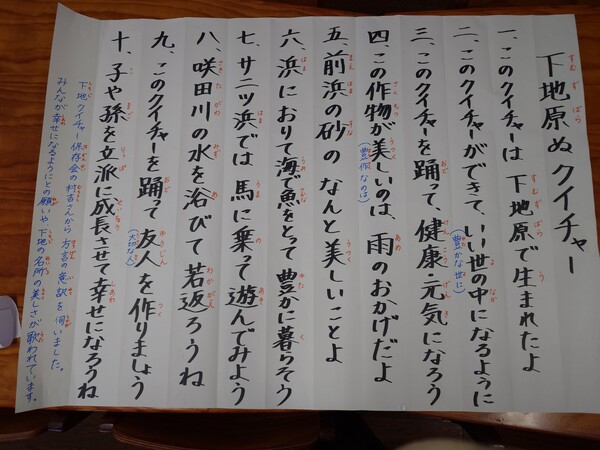 下地原ぬクイチャー
一、このクイチャーは 下地原で生まれたよ
二、このクイチャーができて、いい世の中になるように
(豊かな世に)
三、このクイチャーを踊って、健康・元気になろう
四、この作物が美しいのは、雨のおかげだよ
(豊作なのは)
五、前浜の砂の なんと美しいことよ
六、浜におりて海で魚をとって 豊かに暮らそう
七、サニツ浜では 馬に乗って遊んでみよう
八、咲田川の水を浴びて 若返ろうね
九、このクイチャーを踊って 友人を作りましょう
(大切な人)
十、子や孫を立派に成長させて幸せになろうね
下地クイチャー保存会の村吉さんから 方言の意訳を伺いました。
みんなが幸せになるようにとの願いや、下地の名所の美しさが歌われています。